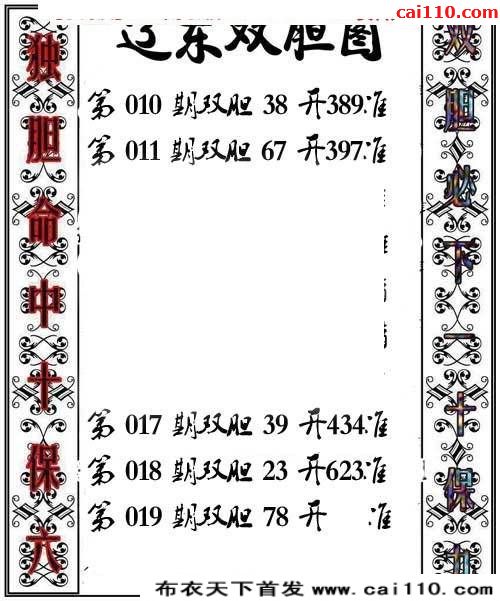 cai110.com
辽东双胆图
独胆命中十保六
第 010 期双胆 38 开389准
第 011 期双胆 67 开397准
第 017 期双胆 39 开434准
第 018 期双胆 23 开623准
第 019 期双胆 78 开 准
双胆必下一十保九
布衣天下首发 www.cai110.com